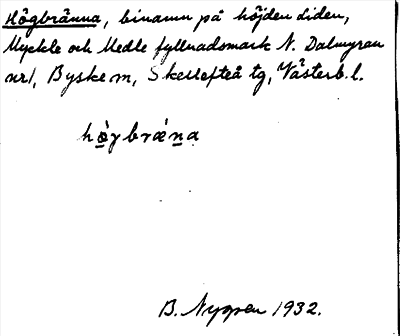 Högbränna, binamn på höjden diden,
Myckle och Medle fyllnadsmark N. Dalmyran
nr1, Byske sn, Skellefteå tg, Västerb. l.
hògbrǽna
B. Nygren 1932.